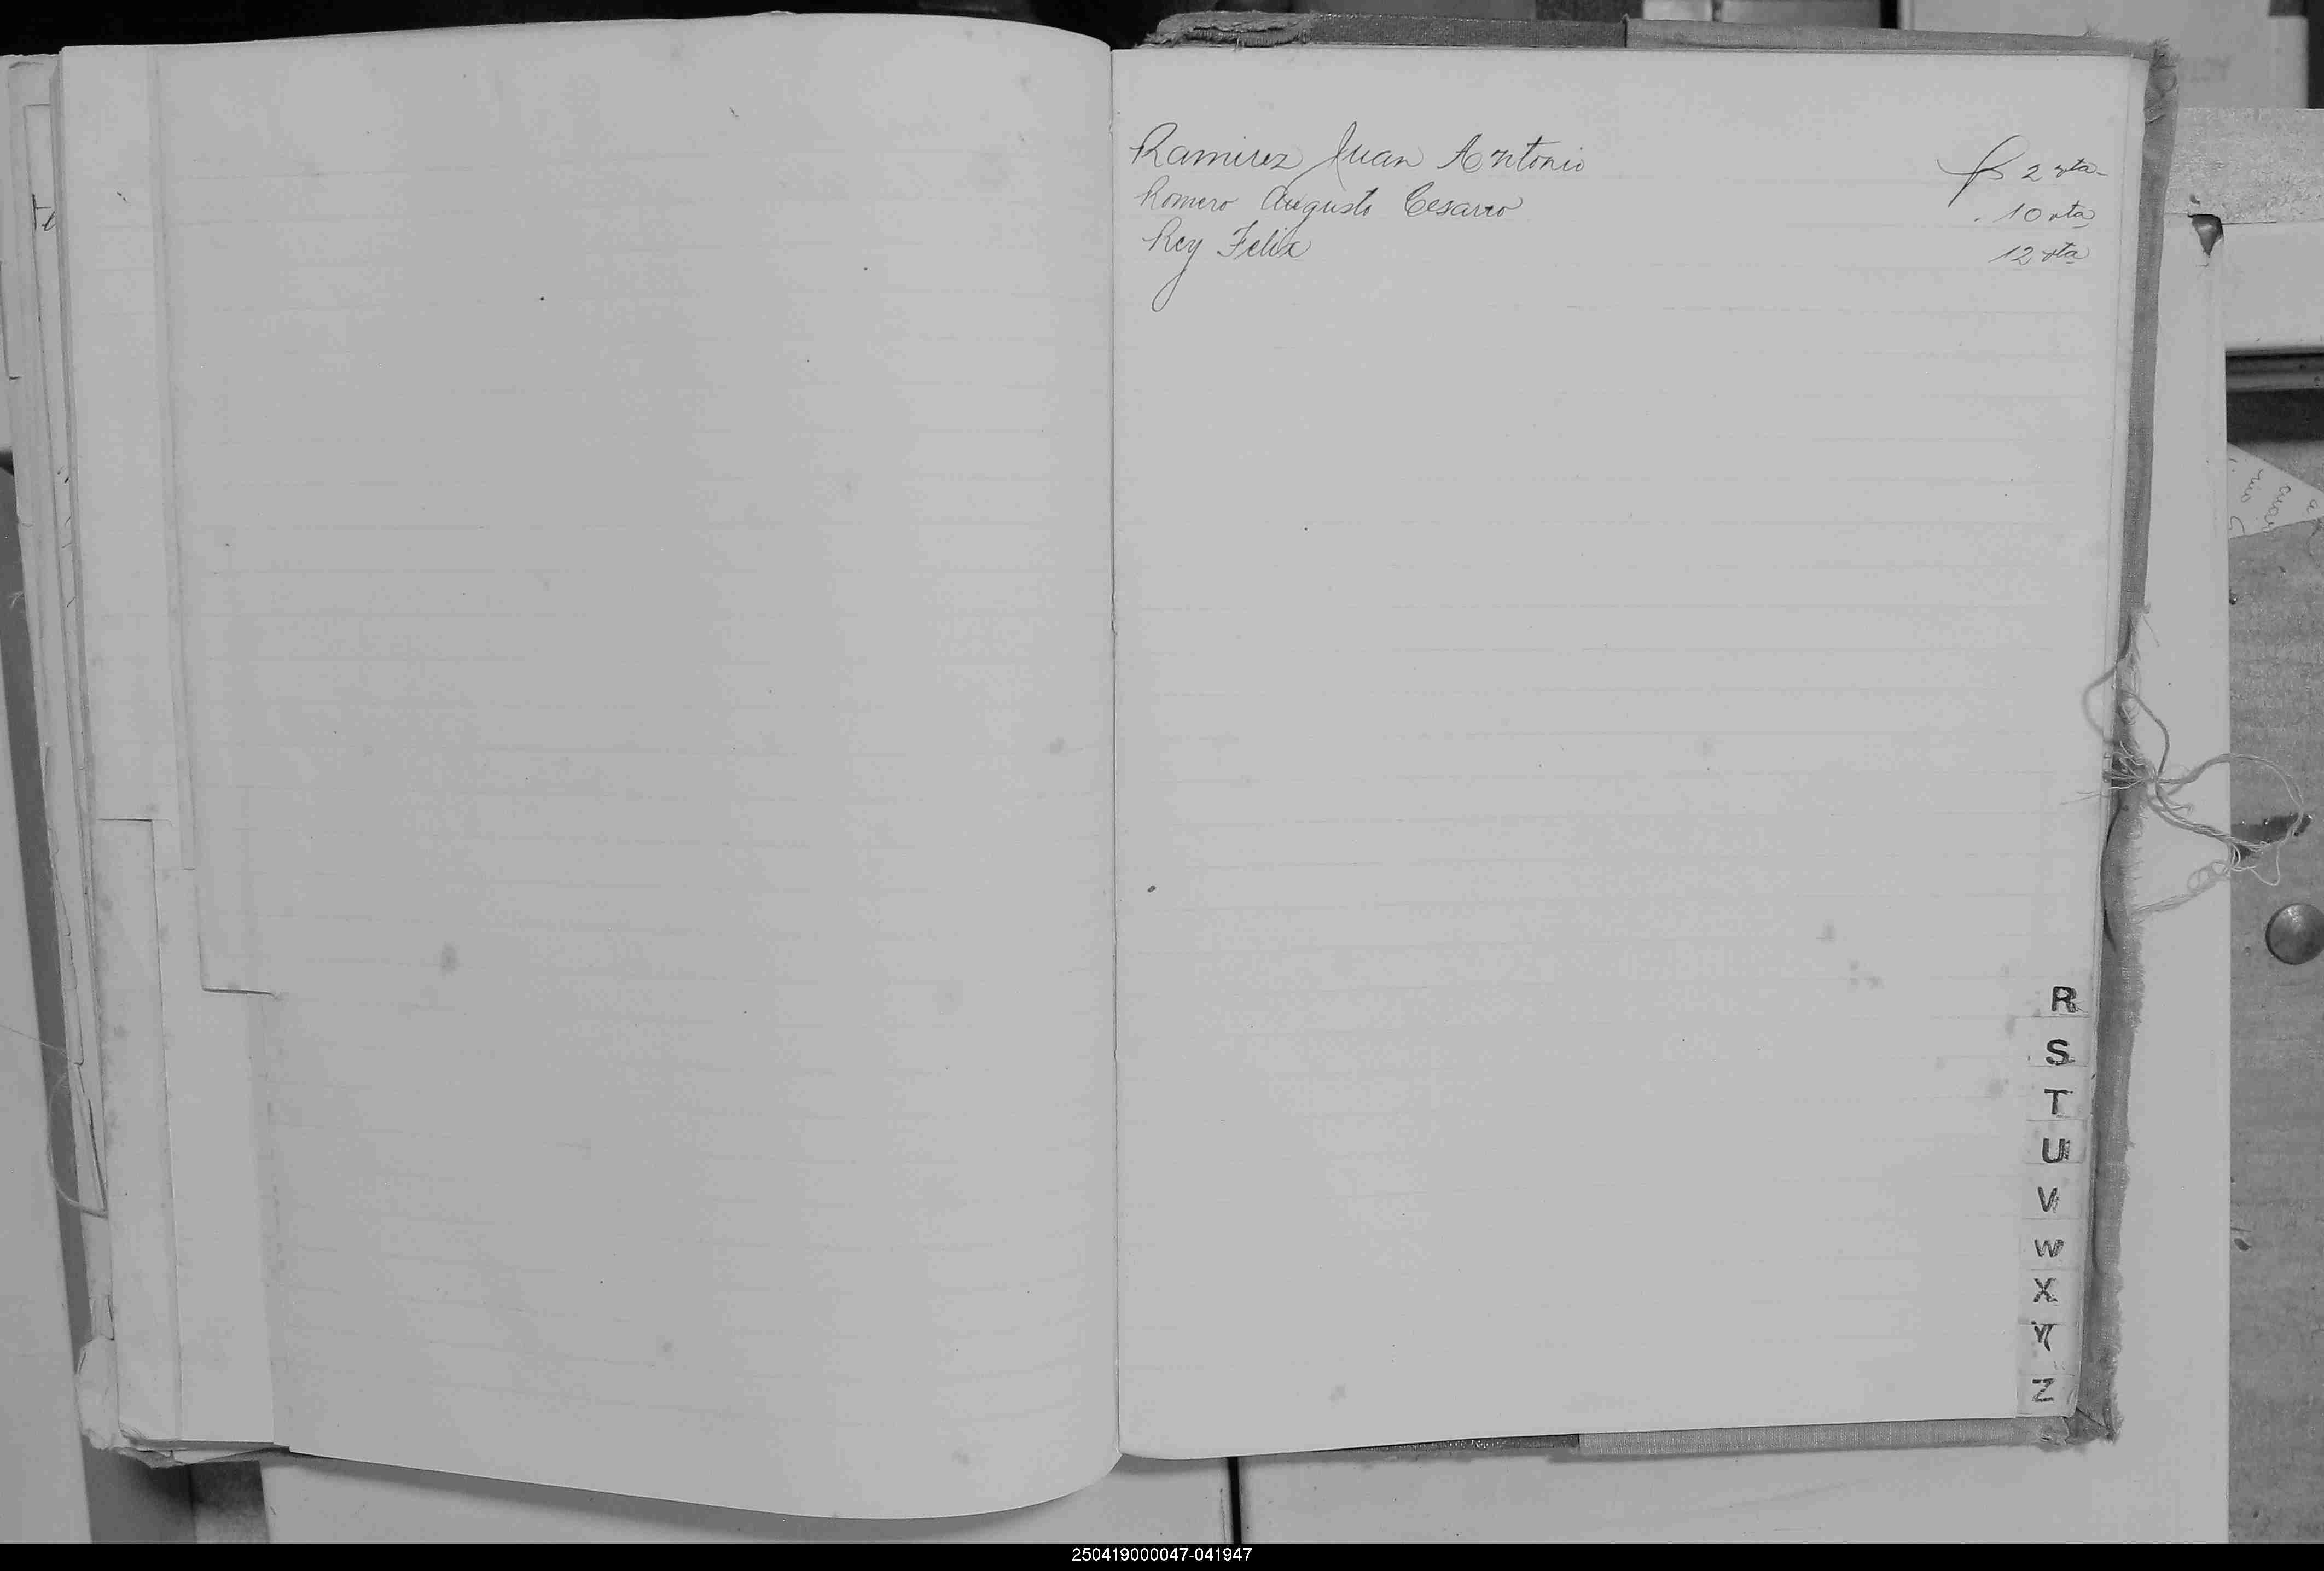 Ramirez Juan Antonio fs 2 vta
Romero Augusto Cesareo 10 vta
Rey Felix 12 vta
R
S
T
U
V
W
X
Y
Z
250419000047-041947